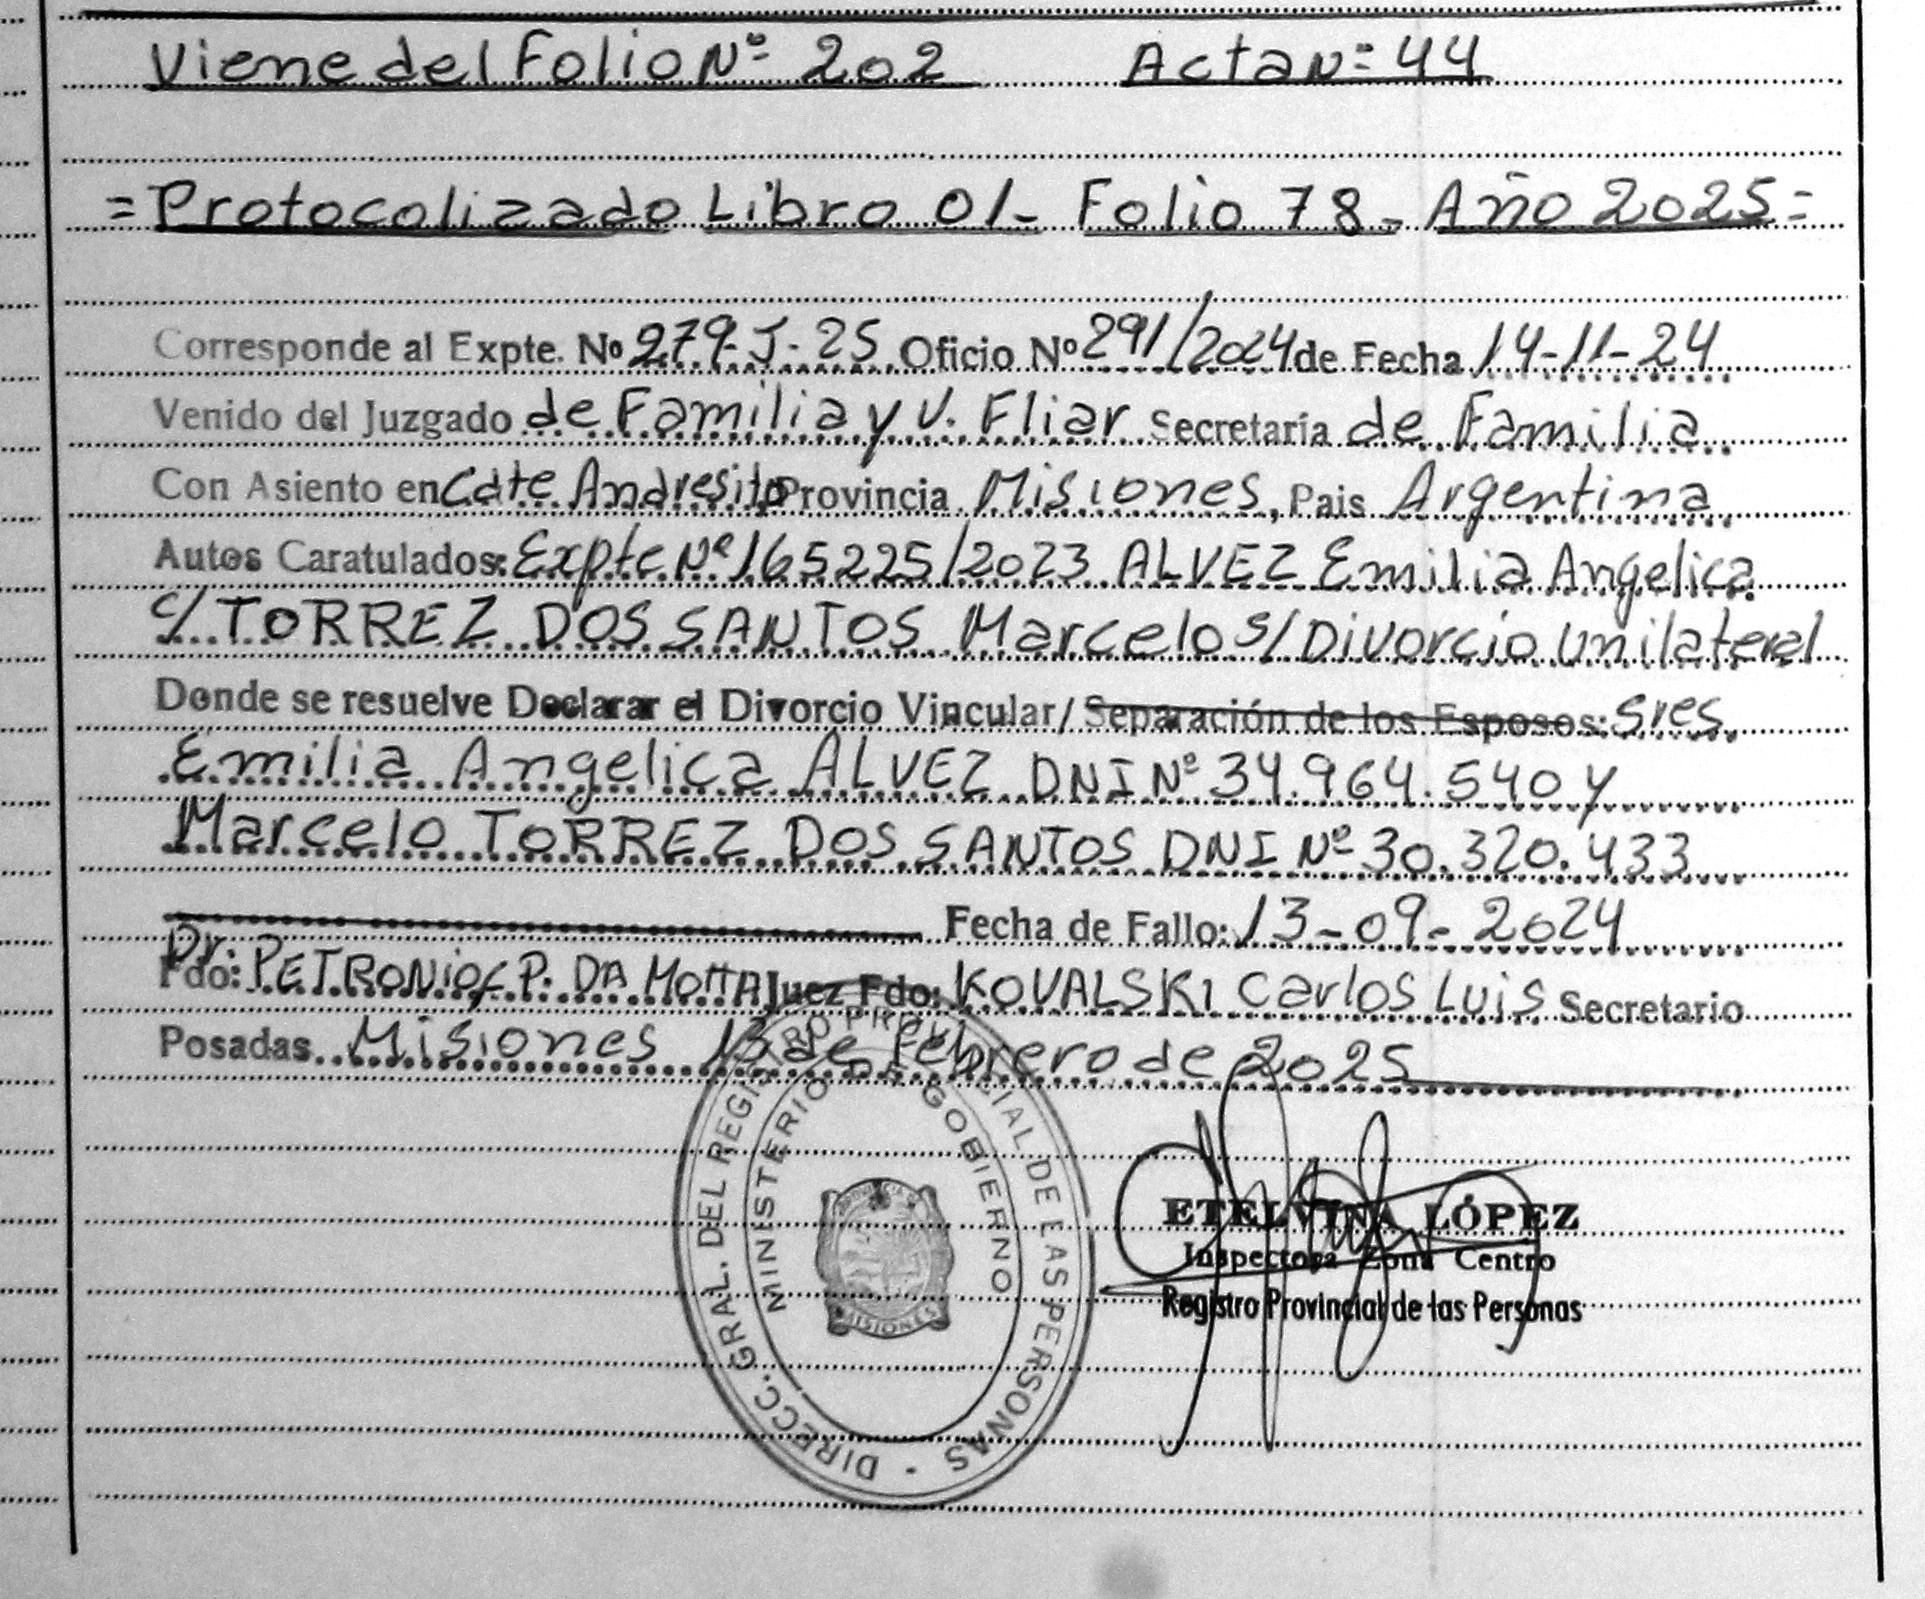 Viene del Folio Nº 202 Acta Nº 44
= Protocolizado Libro 01- Folio 78- Año 2025 =
Corresponde al Expte. Nº 279-J-25 Oficio Nº 291/2024 de Fecha 14-11-24
Venido del Juzgado de Familia y V. Fliar Secretaría de Familia
Con Asiento en Cdte Andresito Provincia Misiones, Pais Argentina
Autos Caratulados: Expte Nº 165225/2023 ALVEZ Emilia Angelica
c/ TORREZ DOS SANTOS Marcelo s/ Divorcio Unilateral
Donde se resuelve Declarar el Divorcio Vincular/ Separación de los Esposos: Sres
Emilia Angelica ALVEZ DNI Nº 34.964.540 y
Marcelo TORREZ DOS SANTOS DNI Nº 30.320.433
Fecha de Fallo: 13-09-2024
Fdo: Dr. PETRONIO P. DA MOTTA Juez Fdo: KOVALSKI Carlos Luis Secretario
Posadas Misiones 13 de Febrero de 2025
DIRECC. GRAL. DEL REGISTRO PROVINCIAL DE LAS PERSONAS
MINISTERIO DE GOBIERNO
MISIONES
ETELVINA LÓPEZ
Inspectora Zona Centro
Registro Provincial de las Personas